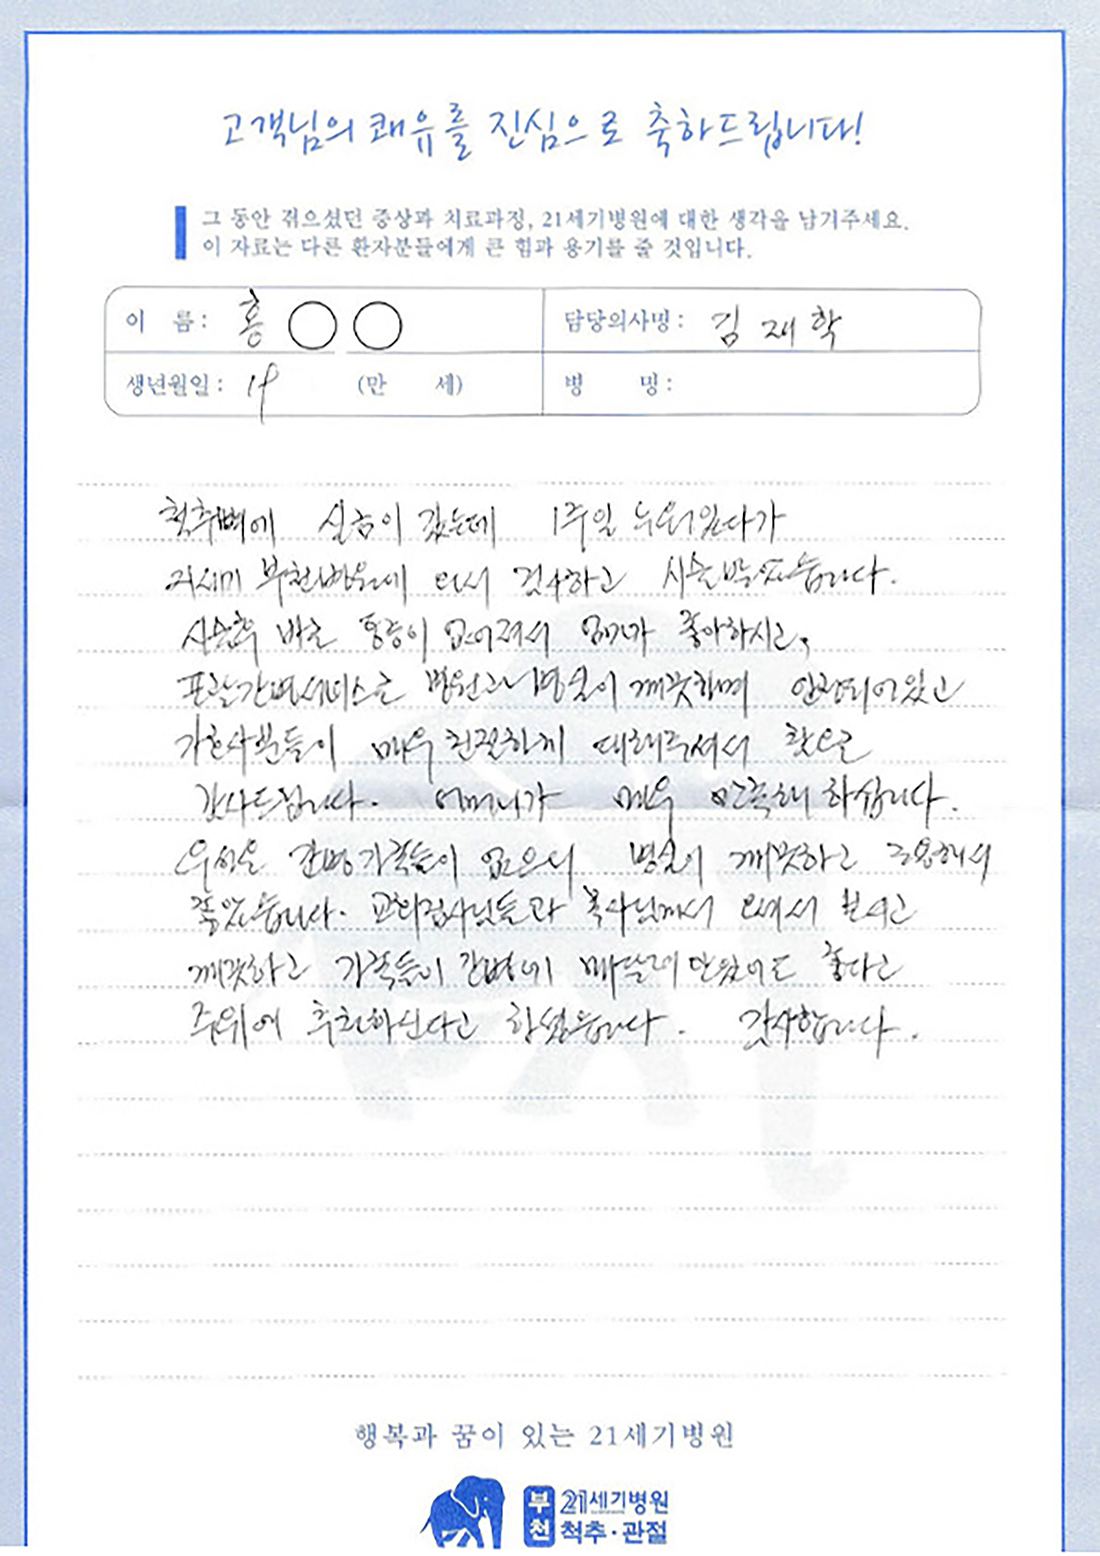 고객님의 쾌유를 진심으로 축하드립니다!
그 동안 겪으셨던 증상과 치료과정, 21세기병원에 대한 생각을 남기주세요.
이 자료는 다른 환자분들에게 큰 힘과 용기를 줄 것입니다.
이 름 : 홍 담당의사명 : 김재학
생년월일 : 19 (만 세) 병 명 :
척추뼈에 실금이 갔는데 1주일 누워있다가
21세기 부천병원에 와서 검사하고 시술받았습니다.
시술후 바로 통증이 없어져서 엄마가 좋아하시고,
포괄간병서비스로 병원고니병실이 깨끗하며 안정되어있고
간호사분들이 매우 친절하게 대해주셔서 참으로
감사드립니다. 어머니가 매우 만족해 하십니다.
우선은 간병가족들이 없으니 병실이 깨끗하고 조용해서
좋았습니다. 교회집사님들과 목사님께서 오셔서 보시고
깨끗하고 가족들이 간병에 매달려 안있어도 좋다고
주위에 추천하신다고 하셨습니다. 감사합니다.
행복과 꿈이 있는 21세기병원
부천 21세기병원
척추·관절